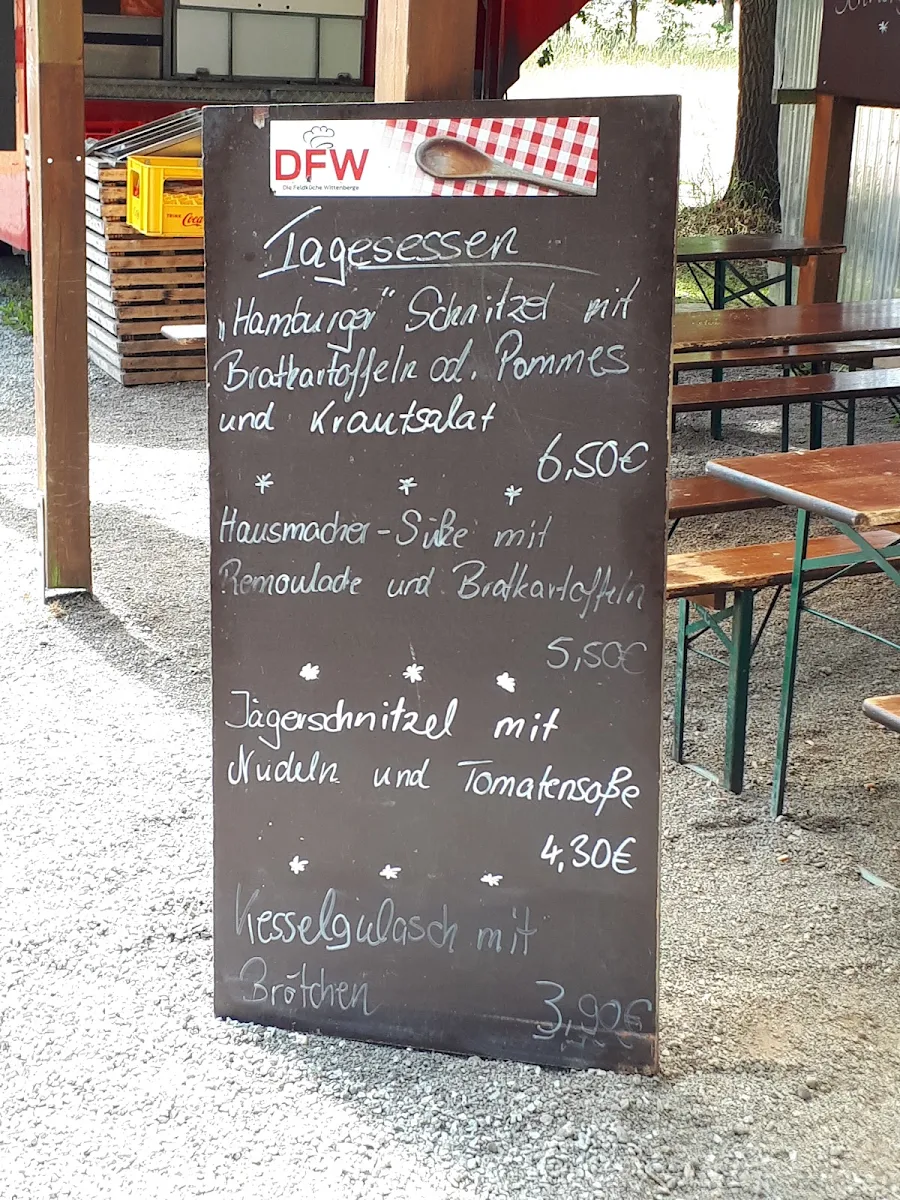 DFW
Die Feldküche Wittenberge
Tagesessen
„Hamburger" Schnitzel mit
Bratkartoffeln od. Pommes
und Krautsalat
6,50€
* * *
Hausmacher-Sülze mit
Remoulade und Bratkartoffeln
5,50€
* * *
Jägerschnitzel mit
Nudeln und Tomatensoße
4,30€
* * *
Kesselgulasch mit
Brötchen 3,90€
Coca